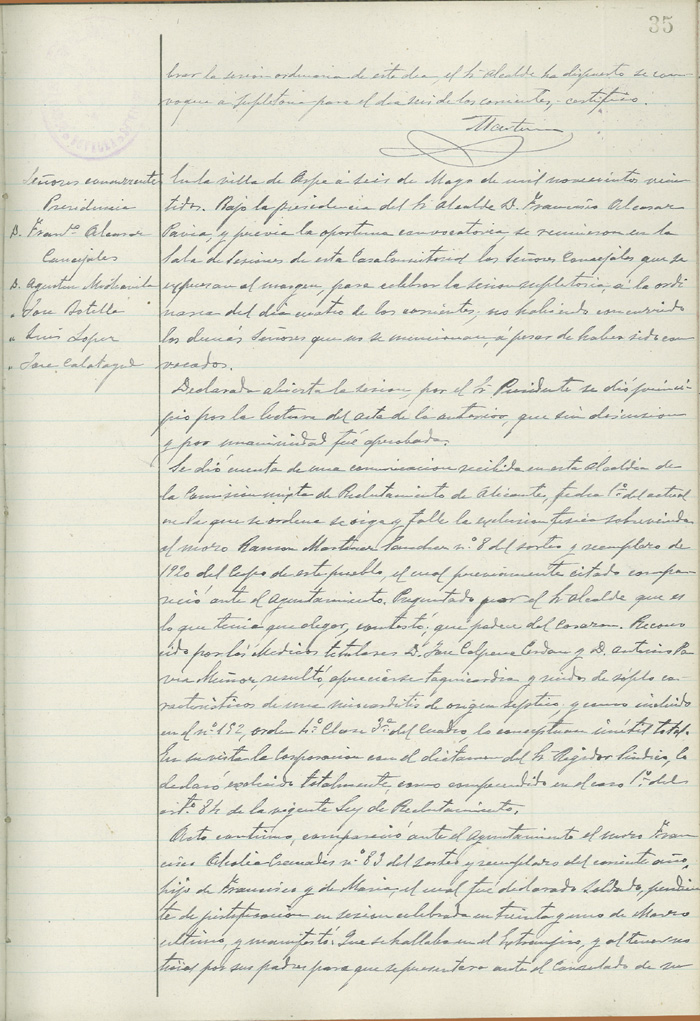 35
brar la sesion ordinaria de este dia, el Sr Alcalde ha dispuesto se con-
voque a supletoria para el dia seis de los corrientes, certifico.
Señores concurrentes
Presidencia
D. Franco. Alcaraz
Concejales
D. Agustin
" Jose Botella
" Luis Lopez
" Jose Calatayud
En la villa de Aspe á seis de Mayo de mil novecientos vein-
tidos. Bajo la presidencia del Sr Alcalde D. Francisco Alcaraz
Pavia, y previa la oportuna convocatoria se reunieron en la
Sala de Sesiones de esta Casa Consistorial los Señores Concejales que se
expresan al margen, para celebrar la sesion supletoria, á la ordi-
naria del dia cuatro de los corrientes, no habiendo concurrido
los demás Señores que no se mencionan, á pesar de haber sido con-
vocados.
Declarada abierta la sesion, por el Sr Presidente se dió princi-
pio por la lectura del acta de la anterior, que sin discusion
y por unanimidad fué aprobada.
Se dió cuenta de una comunicacion recibida en esta Alcaldia de
la Comision mixta de Reclutamiento de Alicante, fecha 1º. del actual
en la que se ordena se oiga y falle la exclusion fisica sobrevenida
al mozo Ramon Martinez Sanchez nº. 8 del sorteo y reemplazo de
1920 del Cupo de este pueblo, el cual previamente citado compa-
reció ante el Ayuntamiento. Preguntado por el Sr Alcalde que es
lo que tenia que alegar, contestó; que padece del corazon. Recono-
cido por los Medicos titulares D. Jose Calpena Cerdan y D. Antonio Pa-
via Muñoz, resultó, apreciarse taquicardia y ruidos de soplo ca-
racteristicos de una miocarditis de origen septico, y como incluido
en el nº. 152, orden 4º. Clase 3ª. del Cuadro, lo conceptuan inútil total.
En su vista la Corporacion con el dictamen del Sr Regidor Sindico, lo
declaró excluido totalmente, como comprendido en el caso 1º. del
artº. 84 de la vigente Ley de Reclutamiento.
Acto continuo, compareció ante el Ayuntamiento el mozo Fran-
cisco Alcolea nº. 83 del sorteo y reemplazo del corriente año,
hijo de Francisco y de Maria, el cual fue declarado Soldado, pendien-
te de justificacion en sesion celebrada en treinta y uno de Marzo
ultimo, y manifestó: Que se hallaba en el Extranjero, y al tener no-
ticias por sus padres para que se presentara ante el Consulado de su